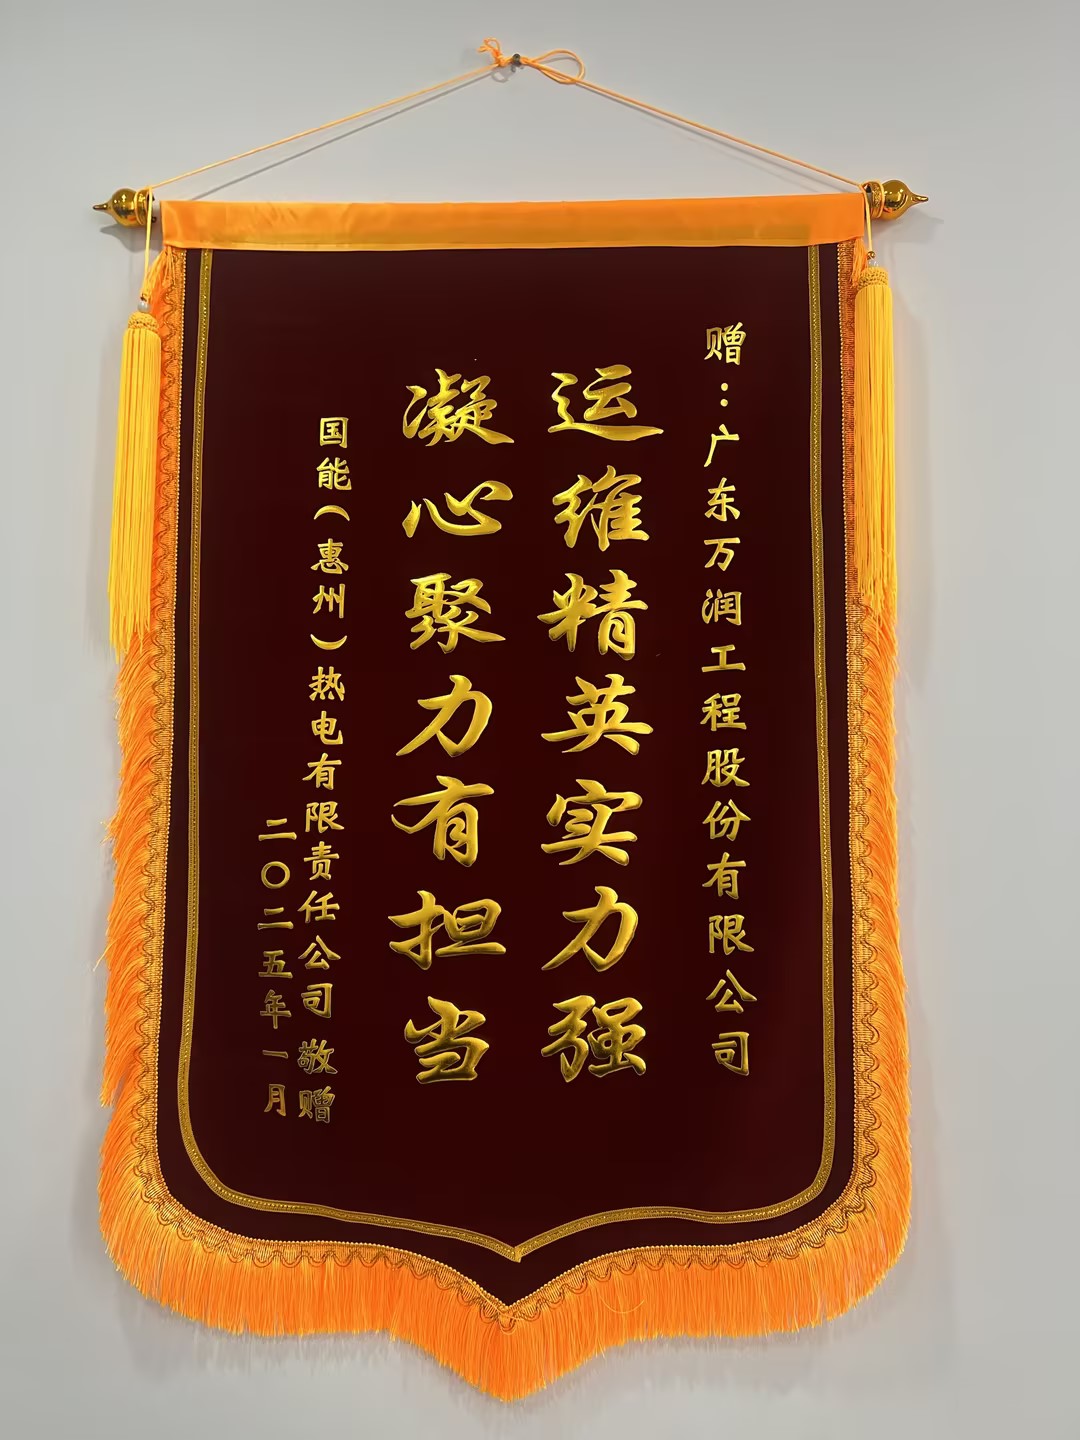 赠：广东万润工程股份有限公司
运维精英实力强
凝心聚力有担当
国能（惠州）热电有限责任公司 敬赠
二〇二五年一月